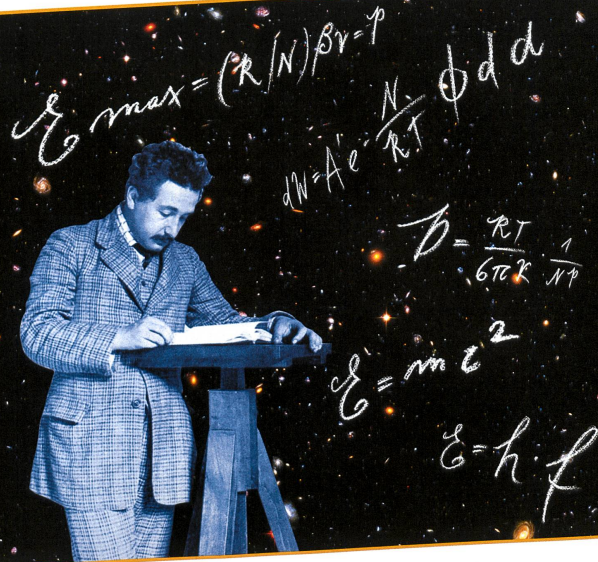 E max = (R/N)βν = P
dW = A'e - N/RT ϕ d d
D = RT/6πK · 1/NP
E = mc²
E = h · f